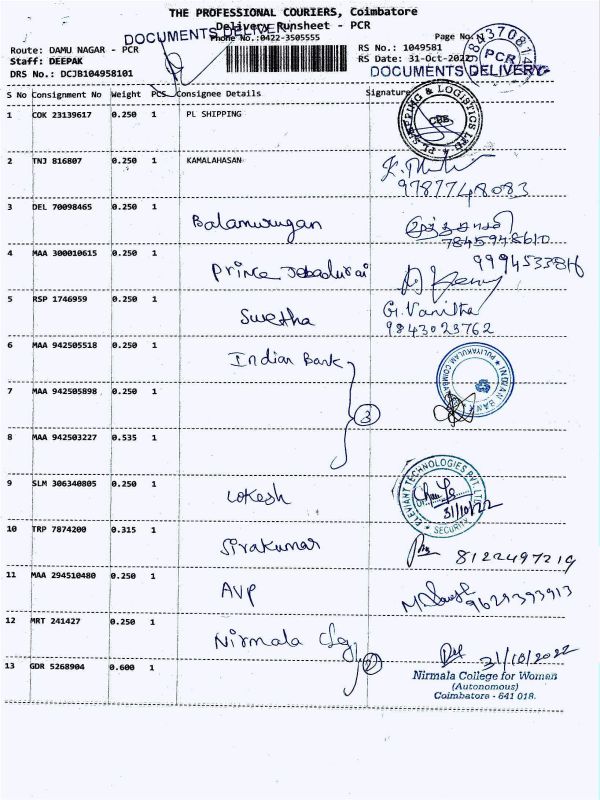 THE PROFESSIONAL COURIERS, Coimbatore
Delivery Runsheet - PCR
DOCUMENTS DELIVERY
Phone No.:0422-3505555
Page No.
Route: DAMU NAGAR - PCR
RS No.: 1049581
Staff: DEEPAK
RS Date: 31-Oct-2022
PCR
DRS No.: DCJB104958101
DOCUMENTS DELIVERY
S No Consignment No Weight PCS Consignee Details Signature
1 COK 23139617 0.250 1 PL SHIPPING
PL SHIPPING & LOGISTICS LTD
CBE
2 TNJ 816807 0.250 1 KAMALAHASAN
9787748083
3 DEL 70098465 0.250 1 Balamurugan
7845948610
4 MAA 300010615 0.250 1 Prince Jebadurai
9994533816
5 RSP 1746959 0.250 1 Swetha
G. Vanitha
9843023762
6 MAA 942505518 0.250 1 Indian Bank
INDIAN BANK
7 MAA 942505898 0.250 1
3
8 MAA 942503227 0.535 1
9 SLM 306340805 0.250 1 Lokesh
TECHNOLOGIES PVT. LTD
31/10/22
SECURITY
10 TRP 7874200 0.315 1 Sivakumar
8122497219
11 MAA 294510480 0.250 1 AVP
9629393913
12 MRT 241427 0.250 1 Nirmala Clg
31/10/2022
13 GDR 5268904 0.600 1
2
Nirmala College for Women
(Autonomous)
Coimbatore - 641 018.